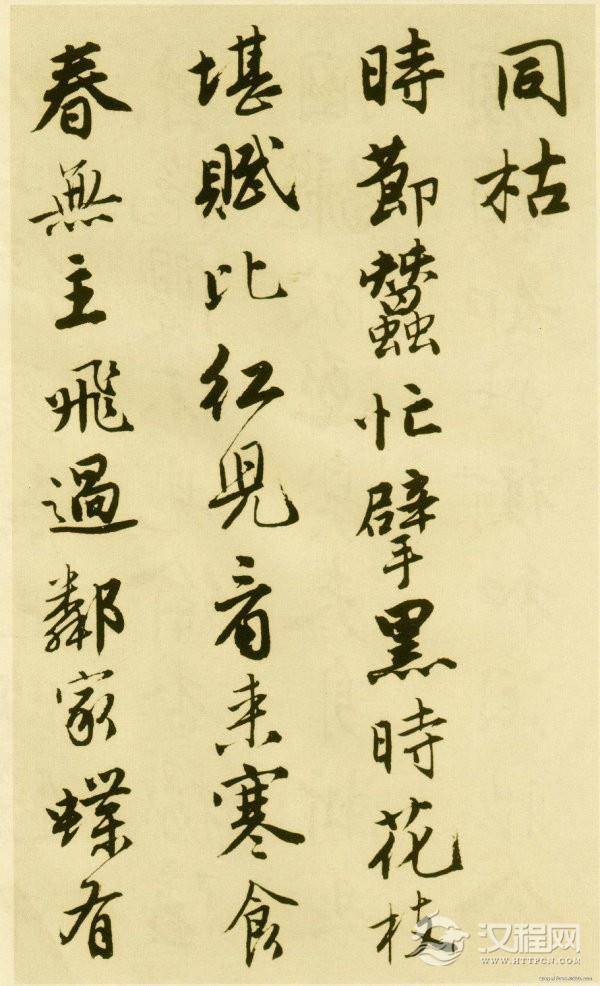 同枯
時節蠶忙擘黑時花枝
堪賦比紅兒看来寒食
春無主飛過鄰家蝶有
汉程网
WWW.HTTPCN.COM